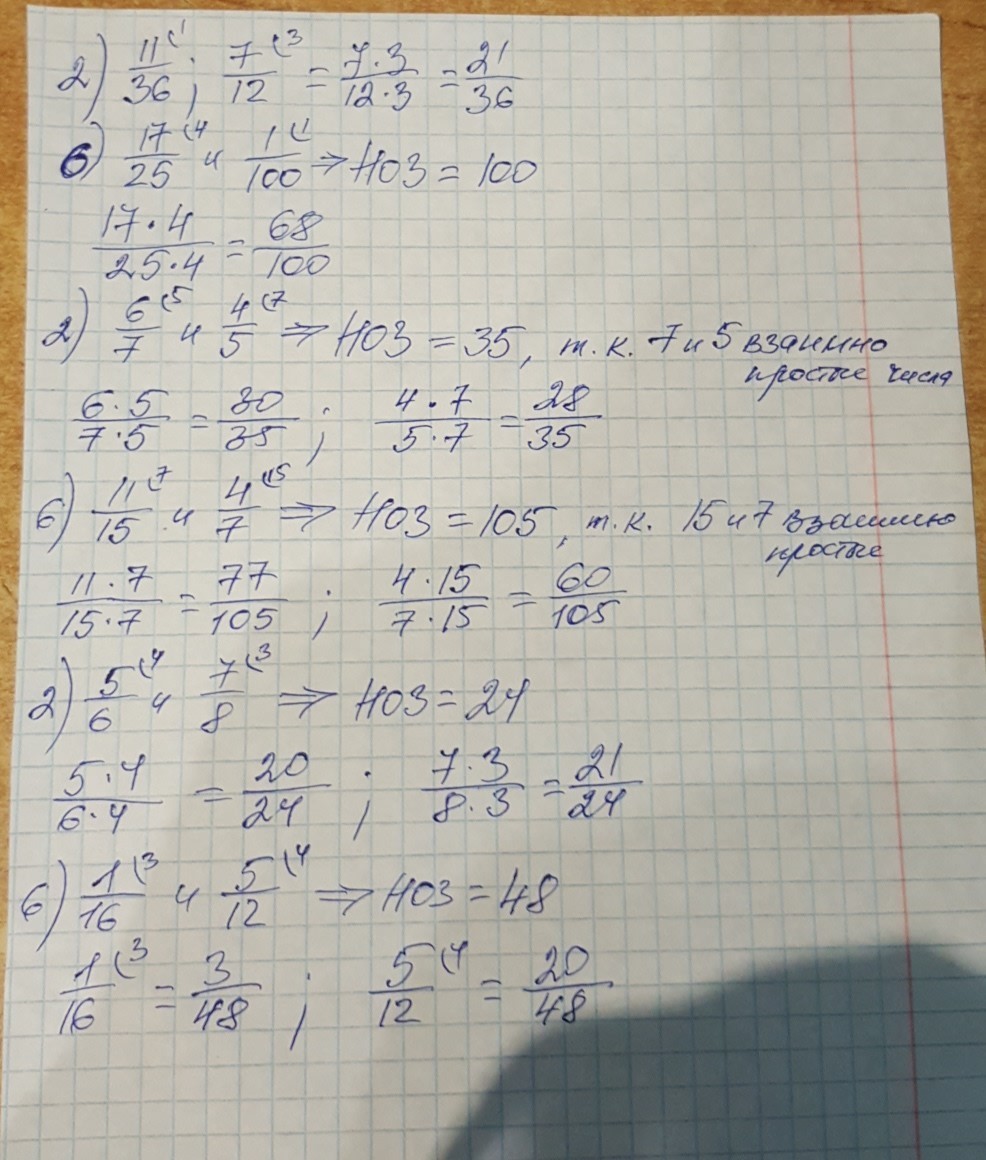 2) 11/36 (1 ; 7/12 (3 = 7·3/12·3 = 21/36
6) 17/25 (4 и 1/100 (1 ⇒ НОЗ = 100
17·4/25·4 = 68/100
2) 6/7 (5 и 4/5 (7 ⇒ НОЗ = 35, т.к. 7 и 5 взаимно
простые числа
6·5/7·5 = 30/35 ; 4·7/5·7 = 28/35
6) 11/15 (7 и 4/7 (15 ⇒ НОЗ = 105, т.к. 15 и 7 взаимно
простые
11·7/15·7 = 77/105 ; 4·15/7·15 = 60/105
2) 5/6 (4 и 7/8 (3 ⇒ НОЗ = 24
5·4/6·4 = 20/24 ; 7·3/8·3 = 21/24
6) 1/16 (3 и 5/12 (4 ⇒ НОЗ = 48
1/16 (3 = 3/48 ; 5/12 (4 = 20/48